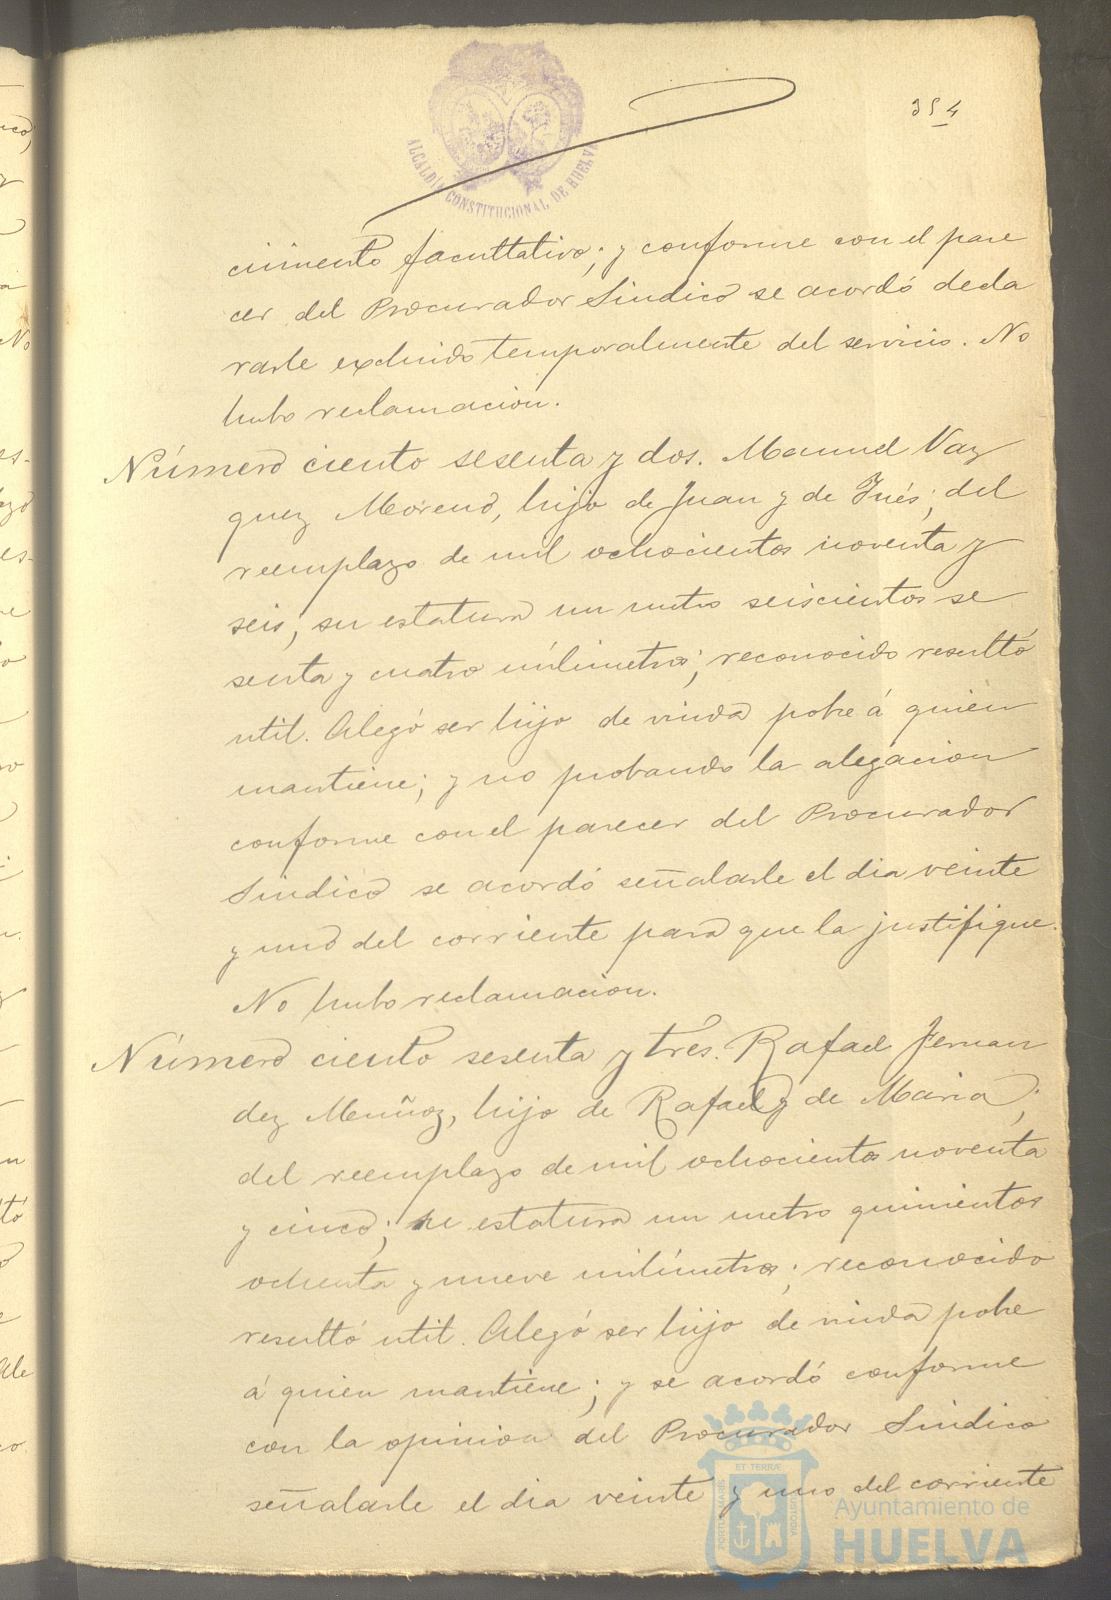 354
ALCALDIA CONSTITUCIONAL DE HUELVA
cimiento facultativo; y conforme con el pare
cer del Procurador Sindico se acordó decla
rarle excluido temporalmente del servicio. No
hubo reclamacion.
Número ciento sesenta y dos. Manuel Vaz
quez Moreno, hijo de Juan y de Inés; del
reemplazo de mil ochocientos noventa y
seis; su estatura un metro seiscientos se
senta y cuatro milimetros; reconocido resultó
util. Alegó ser hijo de viuda pobre á quien
mantiene; y no probando la alegacion
conforme con el parecer del Procurador
Sindico se acordó señalarle el dia veinte
y uno del corriente para que la justifique.
No hubo reclamacion.
Número ciento sesenta y trés. Rafael Fernan
dez Muñoz, hijo de Rafael y de Maria;
del reemplazo de mil ochocientos noventa
y cinco; su estatura un metro quinientos
ochenta y nueve milímetros; reconocido
resultó util. Alegó ser hijo de viuda pobre
á quien mantiene; y se acordó conforme
con la opinion del Procurador Sindico
señalarle el dia veinte y uno del corriente
PORTUS MARIS ET TERRAE CUSTODIA
Ayuntamiento de
HUELVA